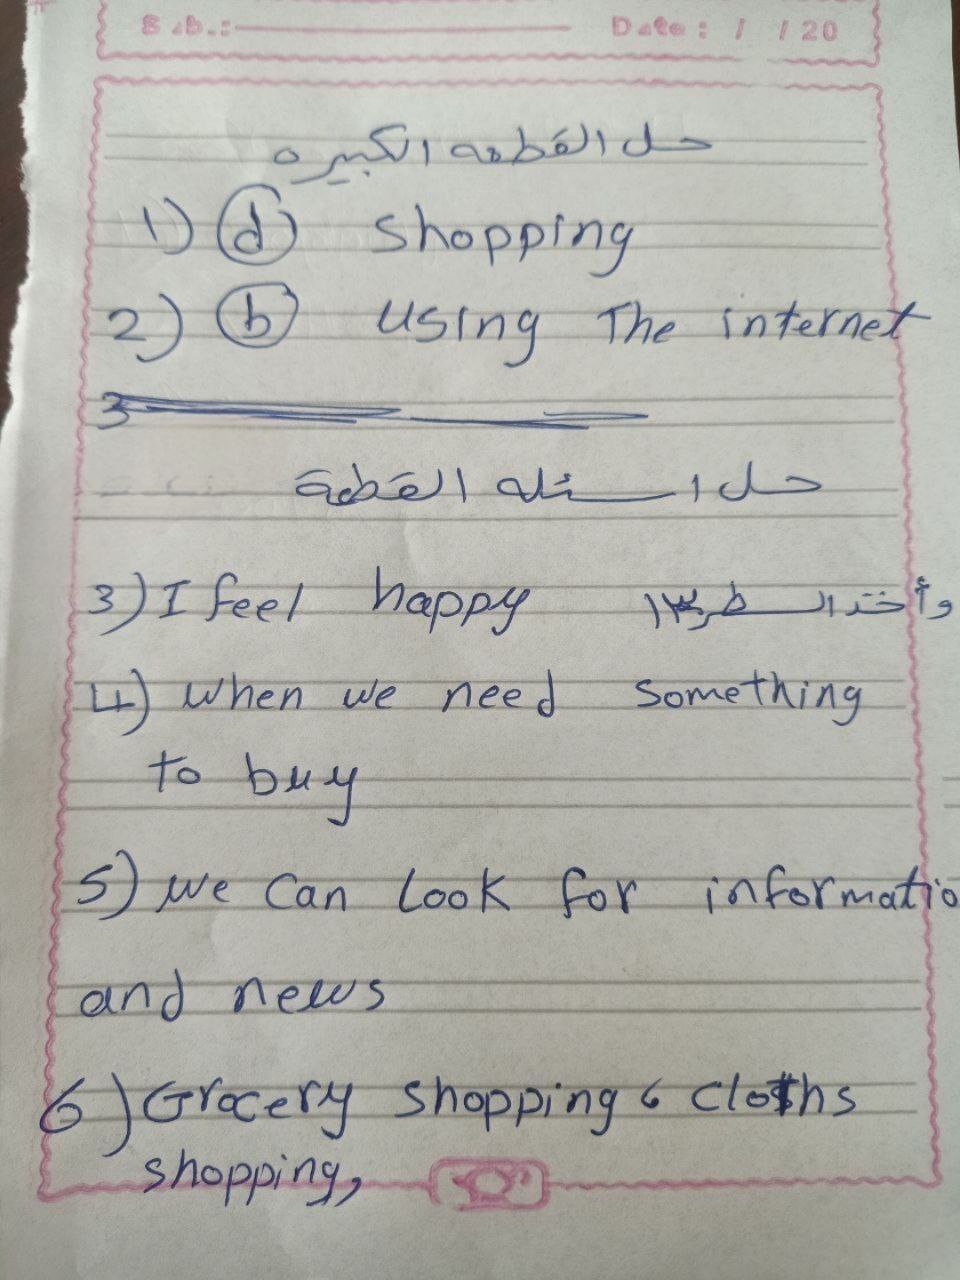 Sub.: Date: / / 20
حل القطعه الكبيره
1) d shopping
2) b using The internet
3
حل اسئله القطعة
3) I feel happy وأختر السطر ١٣
4) when we need something
to buy
5) we can look for informatio
and news
6) Grocery shopping، cloths
shopping,